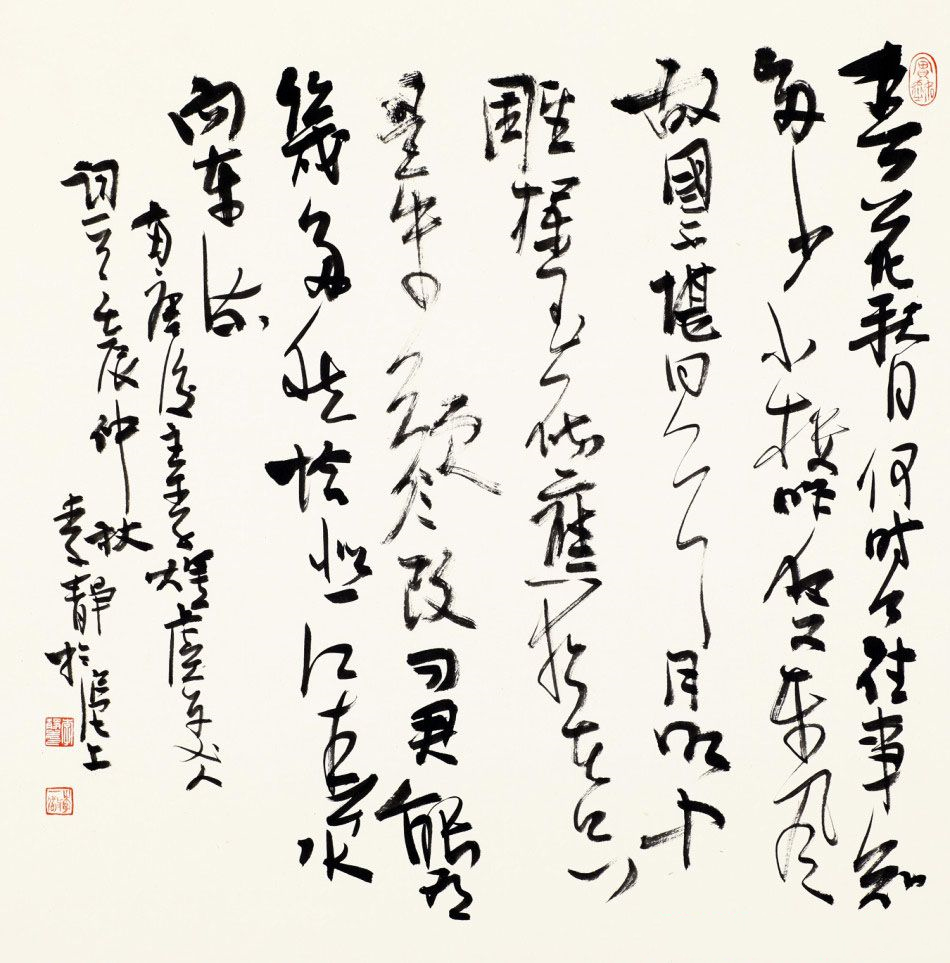 春花秋月何时了往事知
多少小楼昨夜又东风
故國不堪回首月明中
雕欄玉砌應猶在只
是朱顏改问君能有
幾多愁恰似一江春水
向東流
南唐後主李煜虞美人
詞一首壬辰仲秋李靜於滬上